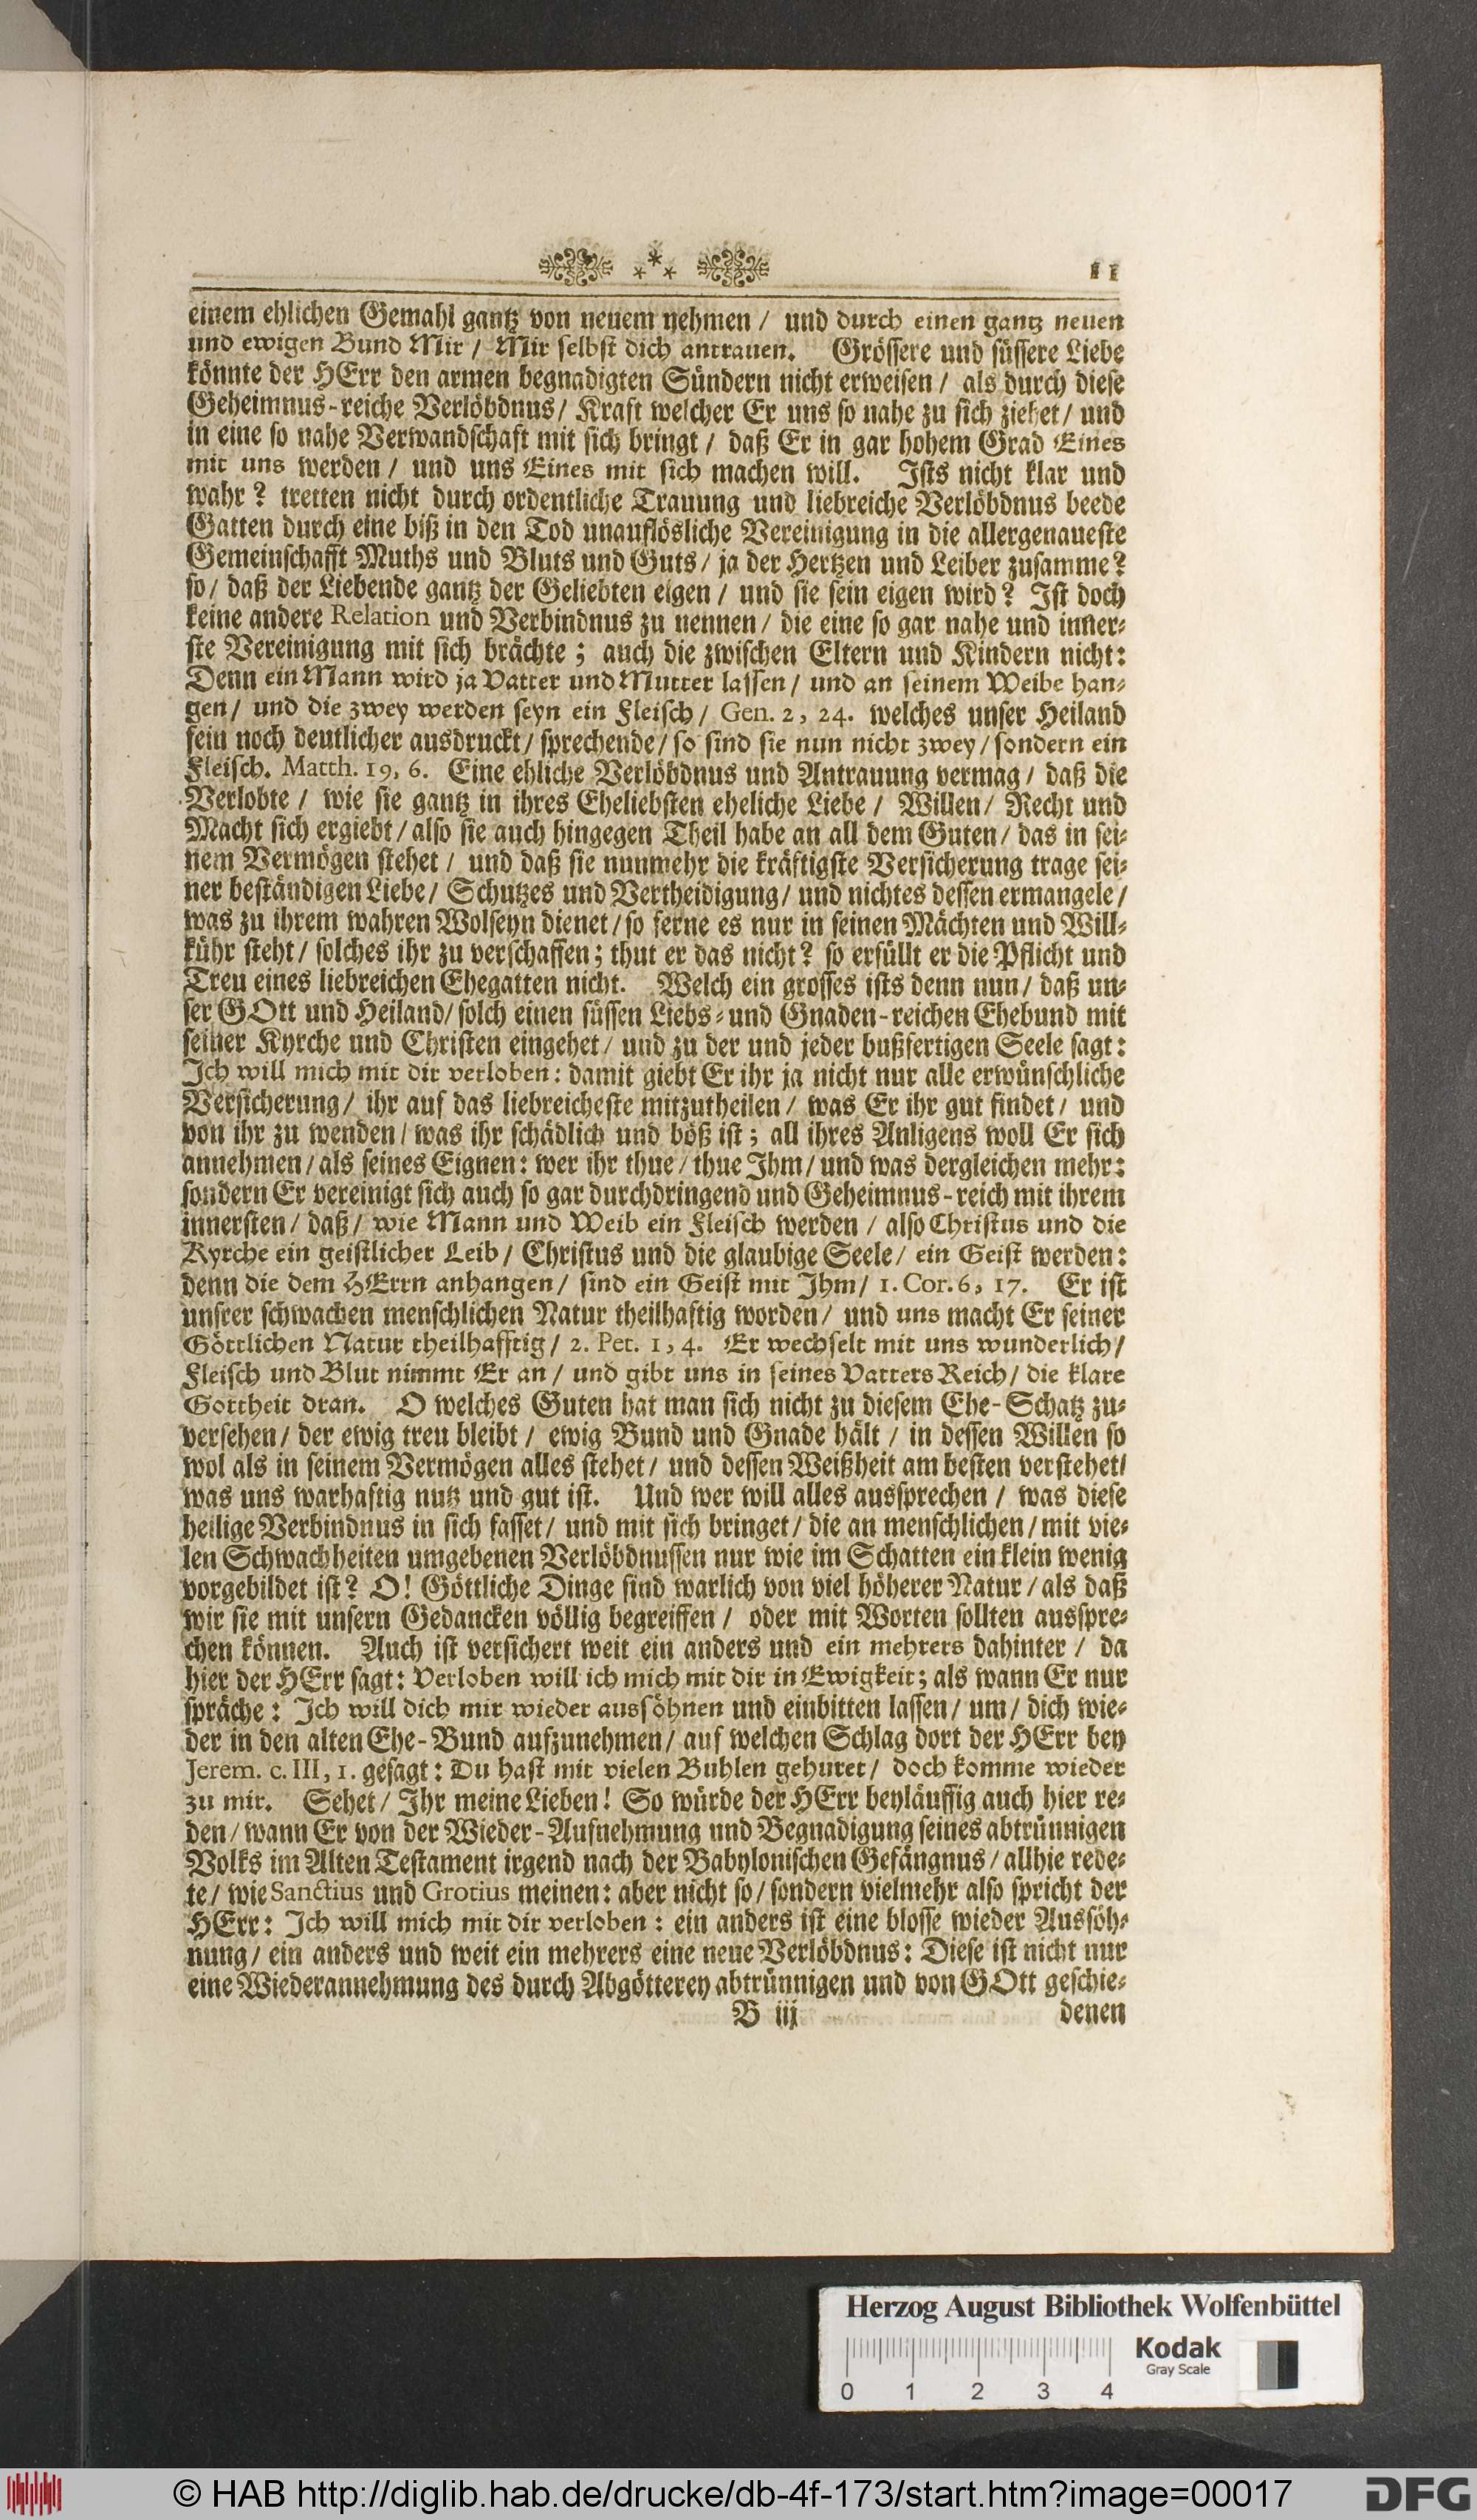 11
einem ehlichen Gemahl gantz von neuem nehmen / und durch einen gantz neuen
und ewigen Bund Mir / Mir selbst dich antrauen. Grössere und süssere Liebe
könnte der HErr den armen begnadigten Sündern nicht erweisen / als durch diese
Geheimnus-reiche Verlöbdnus / Kraft welcher Er uns so nahe zu sich ziehet / und
in eine so nahe Verwandschaft mit sich bringt / daß Er in gar hohem Grad Eines
mit uns werden / und uns Eines mit sich machen will. Ists nicht klar und
wahr? tretten nicht durch ordentliche Trauung und liebreiche Verlöbdnus beede
Gatten durch eine biß in den Tod unauflösliche Vereinigung in die allergenaueste
Gemeinschafft Muths und Bluts und Guts / ja der Hertzen und Leiber zusamme?
so / daß der Liebende gantz der Geliebten eigen / und sie sein eigen wird? Ist doch
keine andere Relation und Verbindnus zu nennen / die eine so gar nahe und inner-
ste Vereinigung mit sich brächte ; auch die zwischen Eltern und Kindern nicht:
Denn ein Mann wird ja Vatter und Mutter lassen / und an seinem Weibe han-
gen / und die zwey werden seyn ein Fleisch / Gen. 2, 24. welches unser Heiland
fein noch deutlicher ausdruckt / sprechende / so sind sie nun nicht zwey / sondern ein
Fleisch. Matth. 19, 6. Eine ehliche Verlöbdnus und Antrauung vermag / daß die
Verlobte / wie sie gantz in ihres Eheliebsten eheliche Liebe / Willen / Recht und
Macht sich ergiebt / also sie auch hingegen Theil habe an all dem Guten / das in sei-
nem Vermögen stehet / und daß sie nunmehr die kräftigste Versicherung trage sei-
ner beständigen Liebe / Schutzes und Vertheidigung / und nichtes dessen ermangele /
was zu ihrem wahren Wolseyn dienet / so ferne es nur in seinen Mächten und Will-
kühr steht / solches ihr zu verschaffen; thut er das nicht? so erfüllt er die Pflicht und
Treu eines liebreichen Ehegatten nicht. Welch ein grosses ists denn nun / daß un-
ser GOtt und Heiland / solch einen süssen Liebs- und Gnaden-reichen Ehebund mit
seiner Kyrche und Christen eingehet / und zu der und jeder bußfertigen Seele sagt:
Ich will mich mit dir verloben: damit giebt Er ihr ja nicht nur alle erwünschliche
Versicherung / ihr auf das liebreicheste mitzutheilen / was Er ihr gut findet / und
von ihr zu wenden / was ihr schädlich und böß ist; all ihres Anligens woll Er sich
annehmen / als seines Eignen: wer ihr thue / thue Ihm / und was dergleichen mehr:
sondern Er vereinigt sich auch so gar durchdringend und Geheimnus-reich mit ihrem
innersten / daß / wie Mann und Weib ein Fleisch werden / also Christus und die
Kyrche ein geistlicher Leib / Christus und die glaubige Seele / ein Geist werden:
denn die dem HErrn anhangen / sind ein Geist mit Ihm / 1. Cor. 6, 17. Er ist
unsrer schwachen menschlichen Natur theilhaftig worden / und uns macht Er seiner
Göttlichen Natur theilhafftig / 2. Pet. 1, 4. Er wechselt mit uns wunderlich /
Fleisch und Blut nimmt Er an / und gibt uns in seines Vatters Reich / die klare
Gottheit dran. O welches Guten hat man sich nicht zu diesem Ehe-Schatz zu-
versehen / der ewig treu bleibt / ewig Bund und Gnade hält / in dessen Willen so
wol als in seinem Vermögen alles stehet / und dessen Weißheit am besten verstehet /
was uns warhaftig nutz und gut ist. Und wer will alles aussprechen / was diese
heilige Verbindnus in sich fasset / und mit sich bringet / die an menschlichen / mit vie-
len Schwachheiten umgebenen Verlöbdnussen nur wie im Schatten ein klein wenig
vorgebildet ist? O! Göttliche Dinge sind warlich von viel höherer Natur / als daß
wir sie mit unsern Gedancken völlig begreiffen / oder mit Worten sollten ausspre-
chen können. Auch ist versichert weit ein anders und ein mehrers dahinter / da
hier der HErr sagt: Verloben will ich mich mit dir in Ewigkeit; als wann Er nur
spräche: Ich will dich mir wieder aussöhnen und einbitten lassen / um / dich wie-
der in den alten Ehe-Bund aufzunehmen / auf welchen Schlag dort der HErr bey
Jerem. c. III, 1. gesagt: Du hast mit vielen Buhlen gehuret / doch komme wieder
zu mir. Sehet / Ihr meine Lieben! So würde der HErr beyläuffig auch hier re-
den / wann Er von der Wieder-Aufnehmung und Begnadigung seines abtrünnigen
Volks im Alten Testament irgend nach der Babylonischen Gefängnus / allhie rede-
te / wie Sanctius und Grotius meinen: aber nicht so / sondern vielmehr also spricht der
HErr: Ich will mich mit dir verloben : ein anders ist eine blosse wieder Aussöh-
nung / ein anders und weit ein mehrers eine neue Verlöbdnus: Diese ist nicht nur
eine Wiederannehmung des durch Abgötterey abtrünnigen und von GOtt geschie-
B iij denen
Herzog August Bibliothek Wolfenbüttel
Kodak
Gray Scale
0 1 2 3 4
© HAB http://diglib.hab.de/drucke/db-4f-173/start.htm?image=00017
DFG